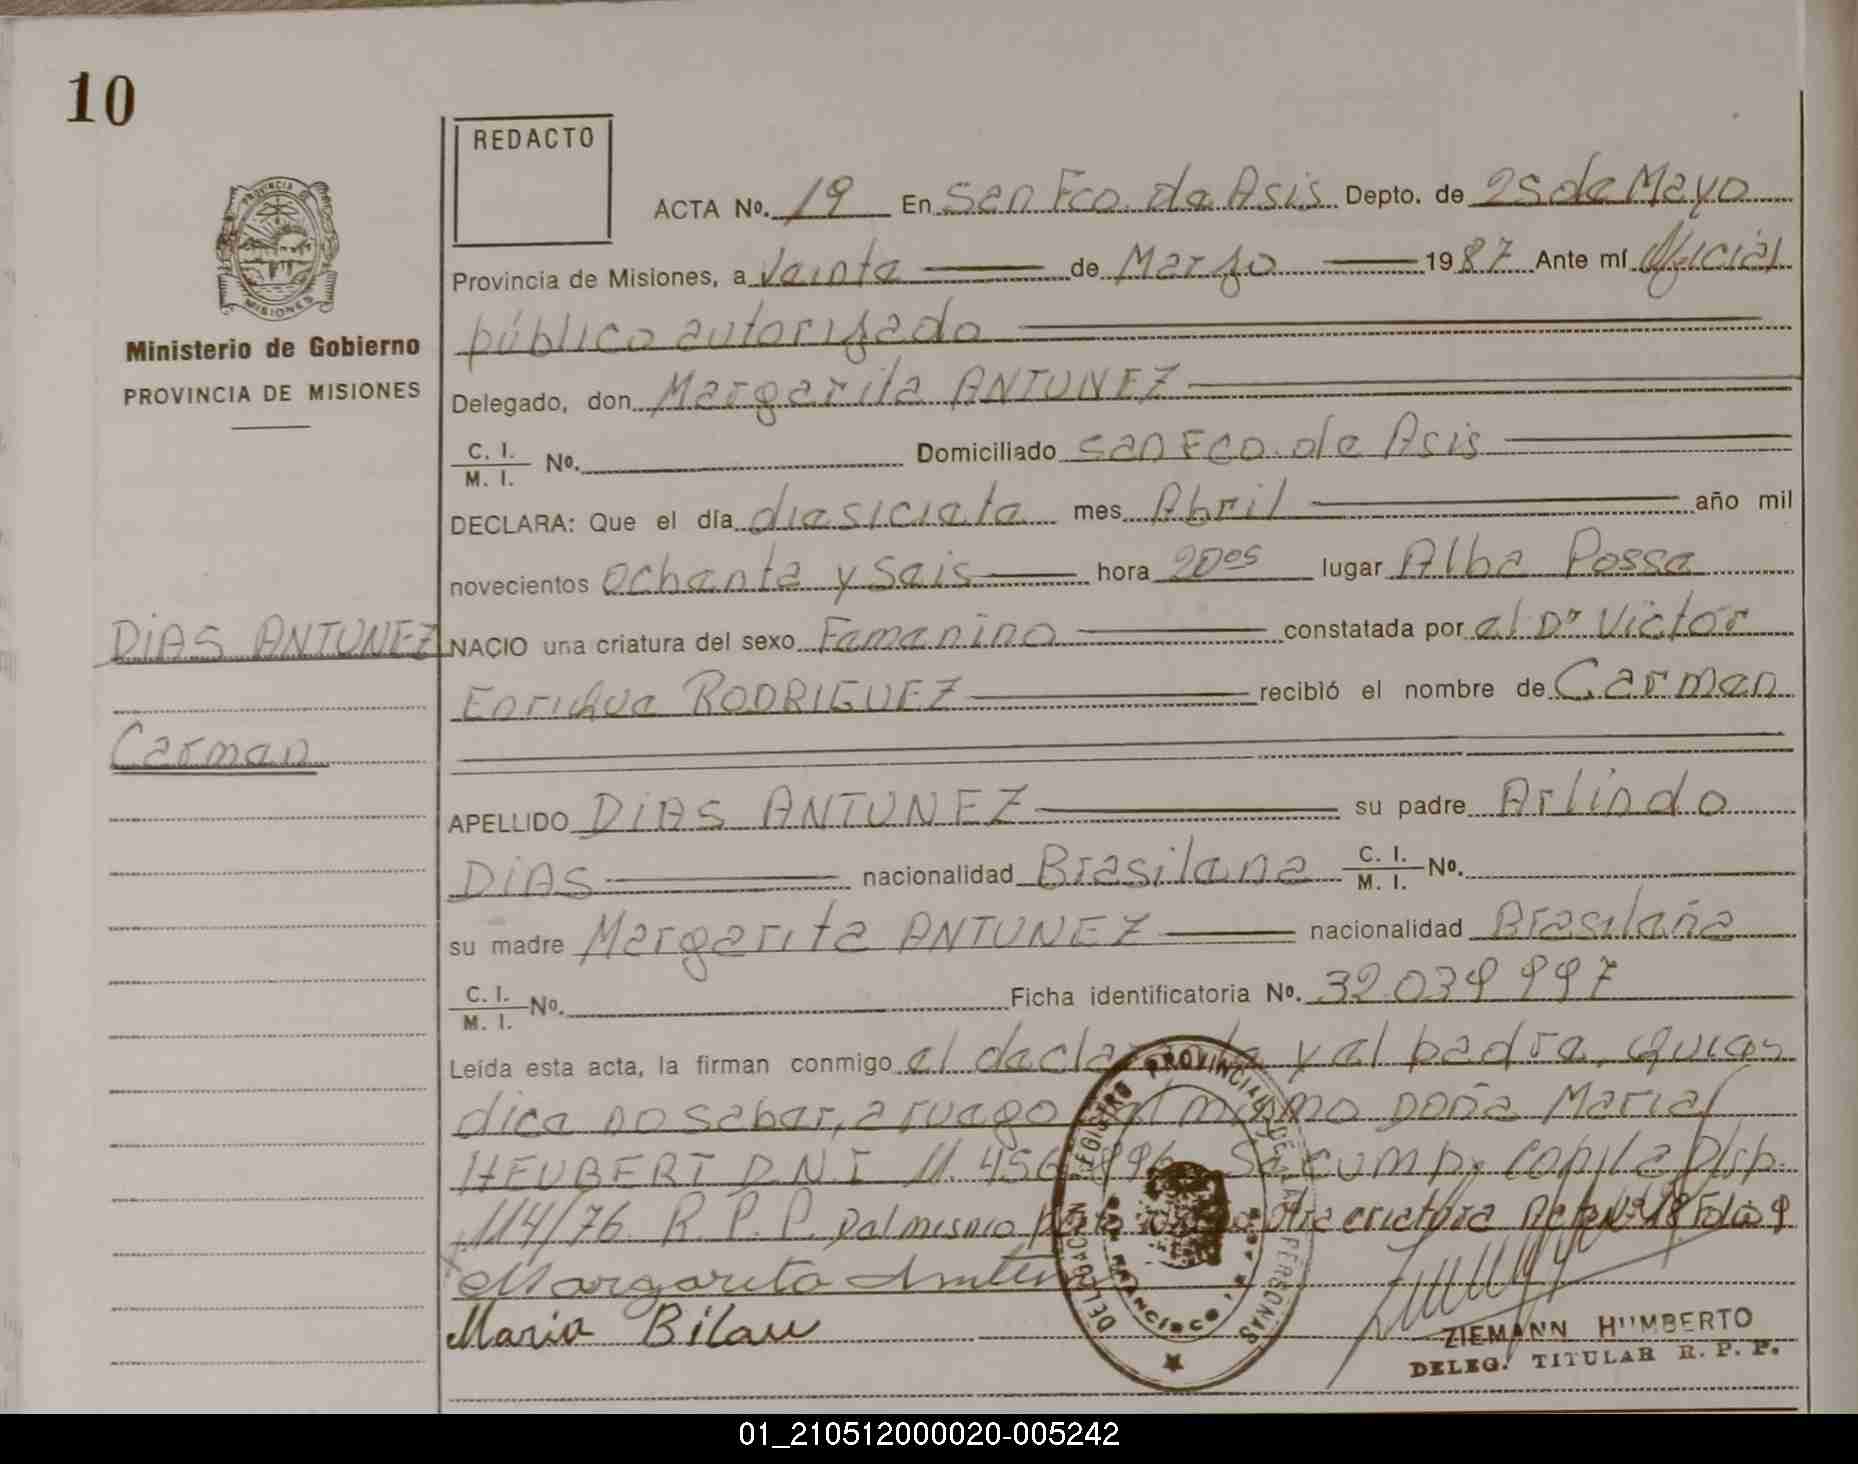 10
REDACTO
ACTA No. 19 En San Fco. de Asis Depto. de 25 de Mayo
PROVINCIA DE
MISIONES
Provincia de Misiones, a Veinte de Marzo 1987 Ante mí Oficial
público autorizado
Ministerio de Gobierno
PROVINCIA DE MISIONES
Delegado, don Margarita ANTUNEZ
C. I. M. I. No. Domiciliado San Fco. de Asis
DECLARA: Que el día diesiciete mes Abril año mil
novecientos ochenta y seis hora 20 lugar Alba Posse
DIAS ANTUNEZ
NACIO una criatura del sexo Femenino constatada por el Dr Victor
Enrique RODRIGUEZ recibió el nombre de Carmen
Carmen
APELLIDO DIAS ANTUNEZ su padre Arlindo
DIAS nacionalidad Brasilena C. I. M. I. No.
su madre Margarita ANTUNEZ nacionalidad Brasileña
C. I. M. I. No. Ficha identificatoria No. 32.039.997
Leída esta acta, la firman conmigo el y el padre, quien
dice no saber, a ruego mismo Doña Maria
HEUBERT D.N.I 11.456.896 Se cump. copila Disp.
114/76 R.P.P. Del mismo otra criatura Acta Nº 18 Folio 9
Margarita
Maria Bilau
DELEGACION REGISTRO PROVINCIAL DE LAS PERSONAS
SAN FRANCISCO
ZIEMANN HUMBERTO
DELEG. TITULAR R. P. P.
01_210512000020-005242